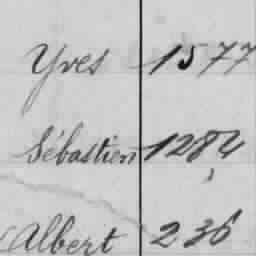 Yves 1577
Sébastien 1284
Albert 236